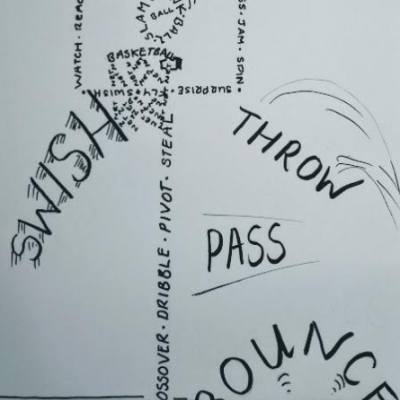 WATCH · REAC
SLAM
BALL
SS · JAM · SPIN
BASKETBALL
SURPRISE · FLY · SWISH
SWISH
THROW
PASS
OSSOVER · DRIBBLE · PIVOT · STEAL
BOUNCE